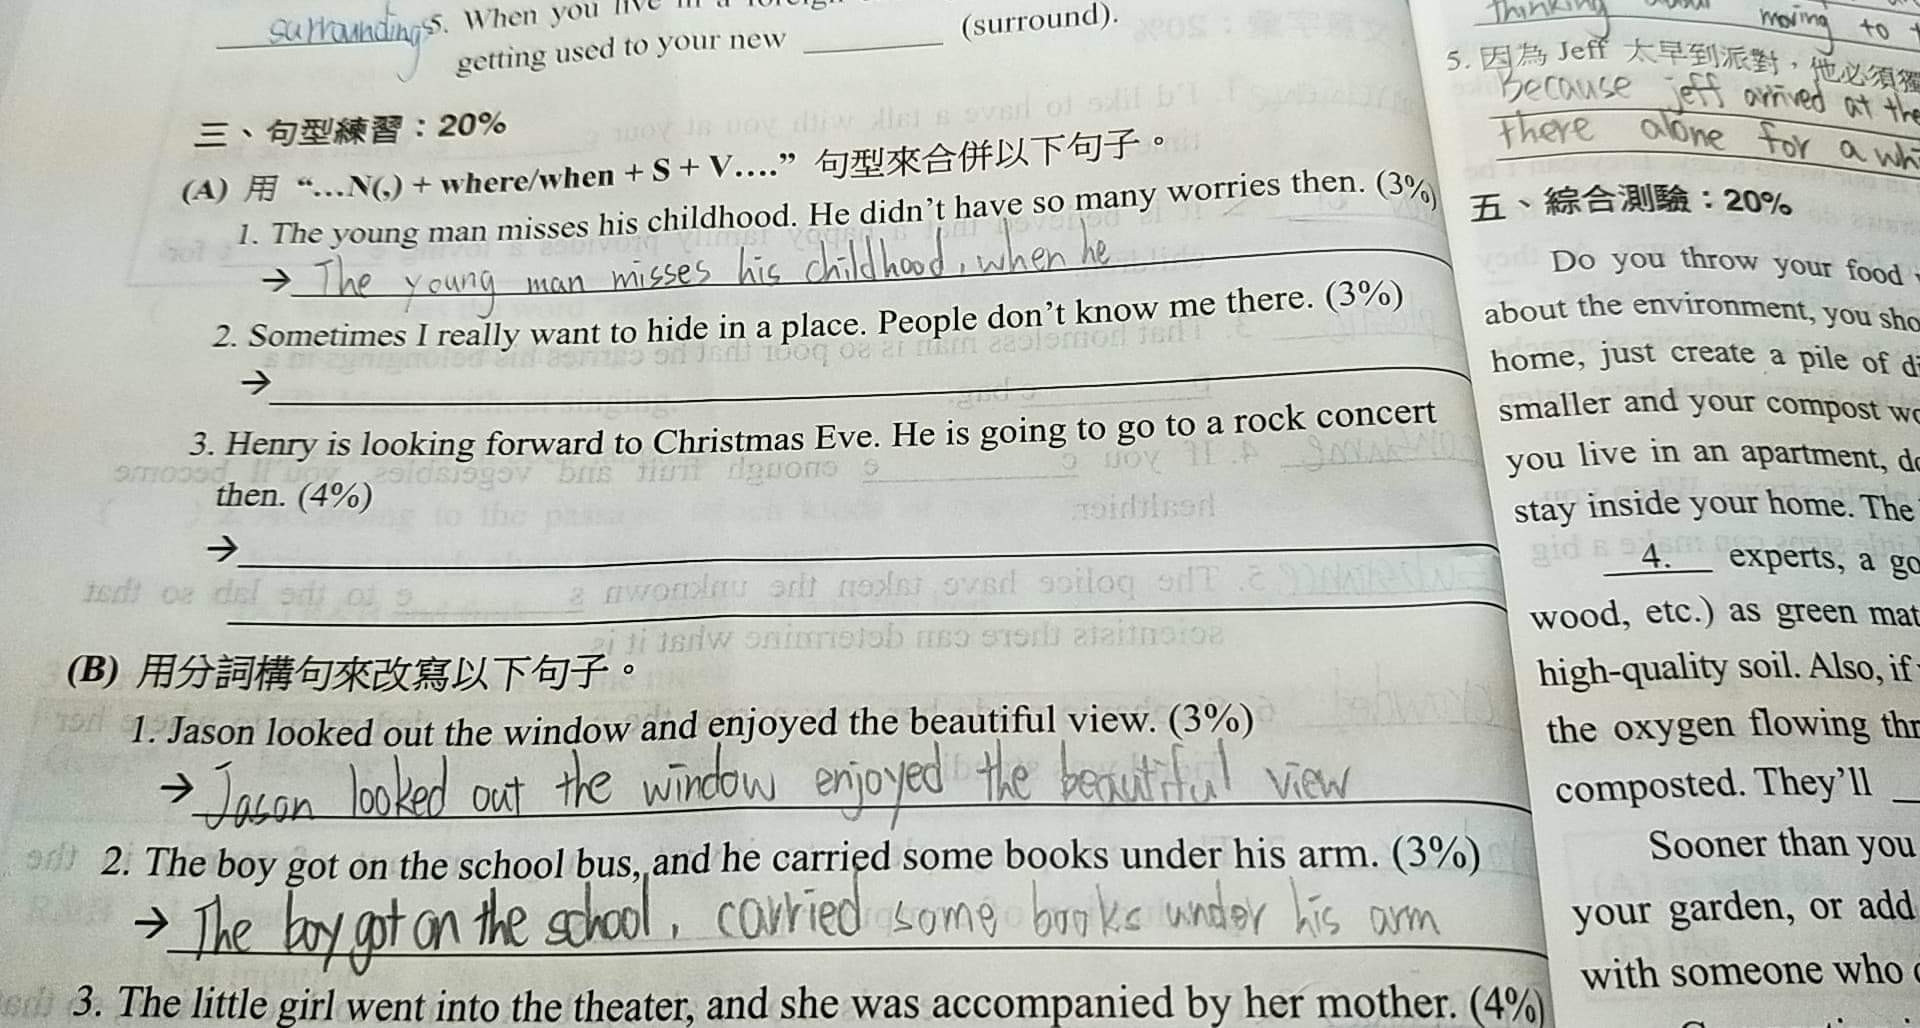 surroundings 5. When you live in a
getting used to your new ________ (surround).
三、句型練習：20%
(A) 用 “…N(,) + where/when + S + V….” 句型來合併以下句子。
1. The young man misses his childhood. He didn’t have so many worries then. (3%)
→ The young man misses his childhood, when he
2. Sometimes I really want to hide in a place. People don’t know me there. (3%)
→
3. Henry is looking forward to Christmas Eve. He is going to go to a rock concert
then. (4%)
→
(B) 用分詞構句來改寫以下句子。
1. Jason looked out the window and enjoyed the beautiful view. (3%)
→ Jason looked out the window enjoyed the beautiful view
2. The boy got on the school bus, and he carried some books under his arm. (3%)
→ The boy got on the school, carried some books under his arm
3. The little girl went into the theater, and she was accompanied by her mother. (4%)
thinking about moving to
5. 因為 Jeff 太早到派對，他必須獨
Because jeff arrived at the
there alone for a whi
五、綜合測驗：20%
Do you throw your food
about the environment, you sho
home, just create a pile of d
smaller and your compost wo
you live in an apartment, do
stay inside your home. The
4. experts, a go
wood, etc.) as green mat
high-quality soil. Also, if
the oxygen flowing thr
composted. They’ll
Sooner than you
your garden, or add
with someone who